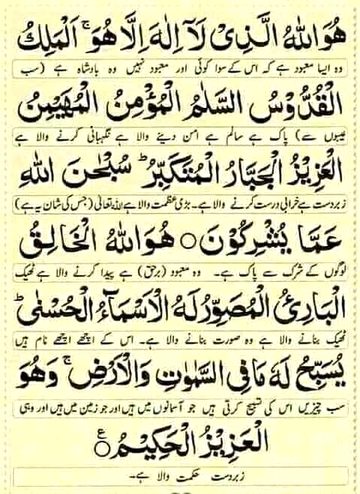 هُوَ اللّٰهُ الَّذِىْ لَاۤ اِلٰهَ اِلَّا هُوَ ۚ اَلْمَلِكُ
وہ ایسا معبود ہے کہ اس کے سوا کوئی اور معبود نہیں وہ بادشاہ ہے (سب
الْقُدُّوْسُ السَّلٰمُ الْمُؤْمِنُ الْمُهَيْمِنُ
عیبوں سے) پاک ہے سالم ہے امن دینے والا ہے نگہبانی کرنے والا ہے
الْعَزِيْزُ الْجَبَّارُ الْمُتَكَبِّرُ ؕ سُبْحٰنَ اللّٰهِ
زبردست ہے خرابی درست کرنے والا ہے۔ بڑی عظمت والا ہے اللہ تعالیٰ (جس کی شان یہ ہے)
عَمَّا يُشْرِكُوْنَ ○ هُوَ اللّٰهُ الْخَالِقُ
لوگوں کے شرک سے پاک ہے۔ وہ معبود (برحق) ہے پیدا کرنے والا ہے ٹھیک
الْبَارِئُ الْمُصَوِّرُ لَهُ الْاَسْمَآءُ الْحُسْنٰى ؕ
ٹھیک بنانے والا ہے وہ صورت بنانے والا ہے۔ اس کے اچھے اچھے نام ہیں
يُسَبِّحُ لَهٗ مَا فِى السَّمٰوٰتِ وَالْاَرْضِ ۚ وَهُوَ
سب چیزیں اس کی تسبیح کرتی ہیں جو آسمانوں میں ہیں اور جو زمین میں ہیں اور وہی
الْعَزِيْزُ الْحَكِيْمُ ○ ع
زبردست حکمت والا ہے۔